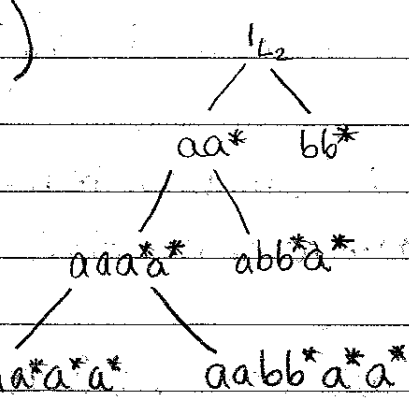 )
1_{L_2}
aa* bb*
aaa*a* abb*a*
a*a*a* aabb*a*a*